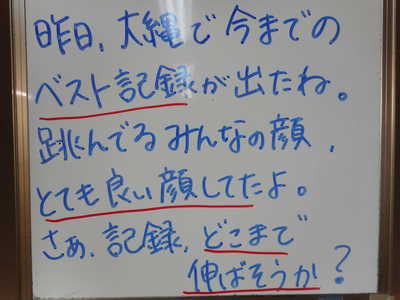 昨日,大縄で今までの
ベスト記録が出たね。
跳んでるみんなの顔,
とても良い顔してたよ。
さぁ,記録,どこまで
伸ばそうか?